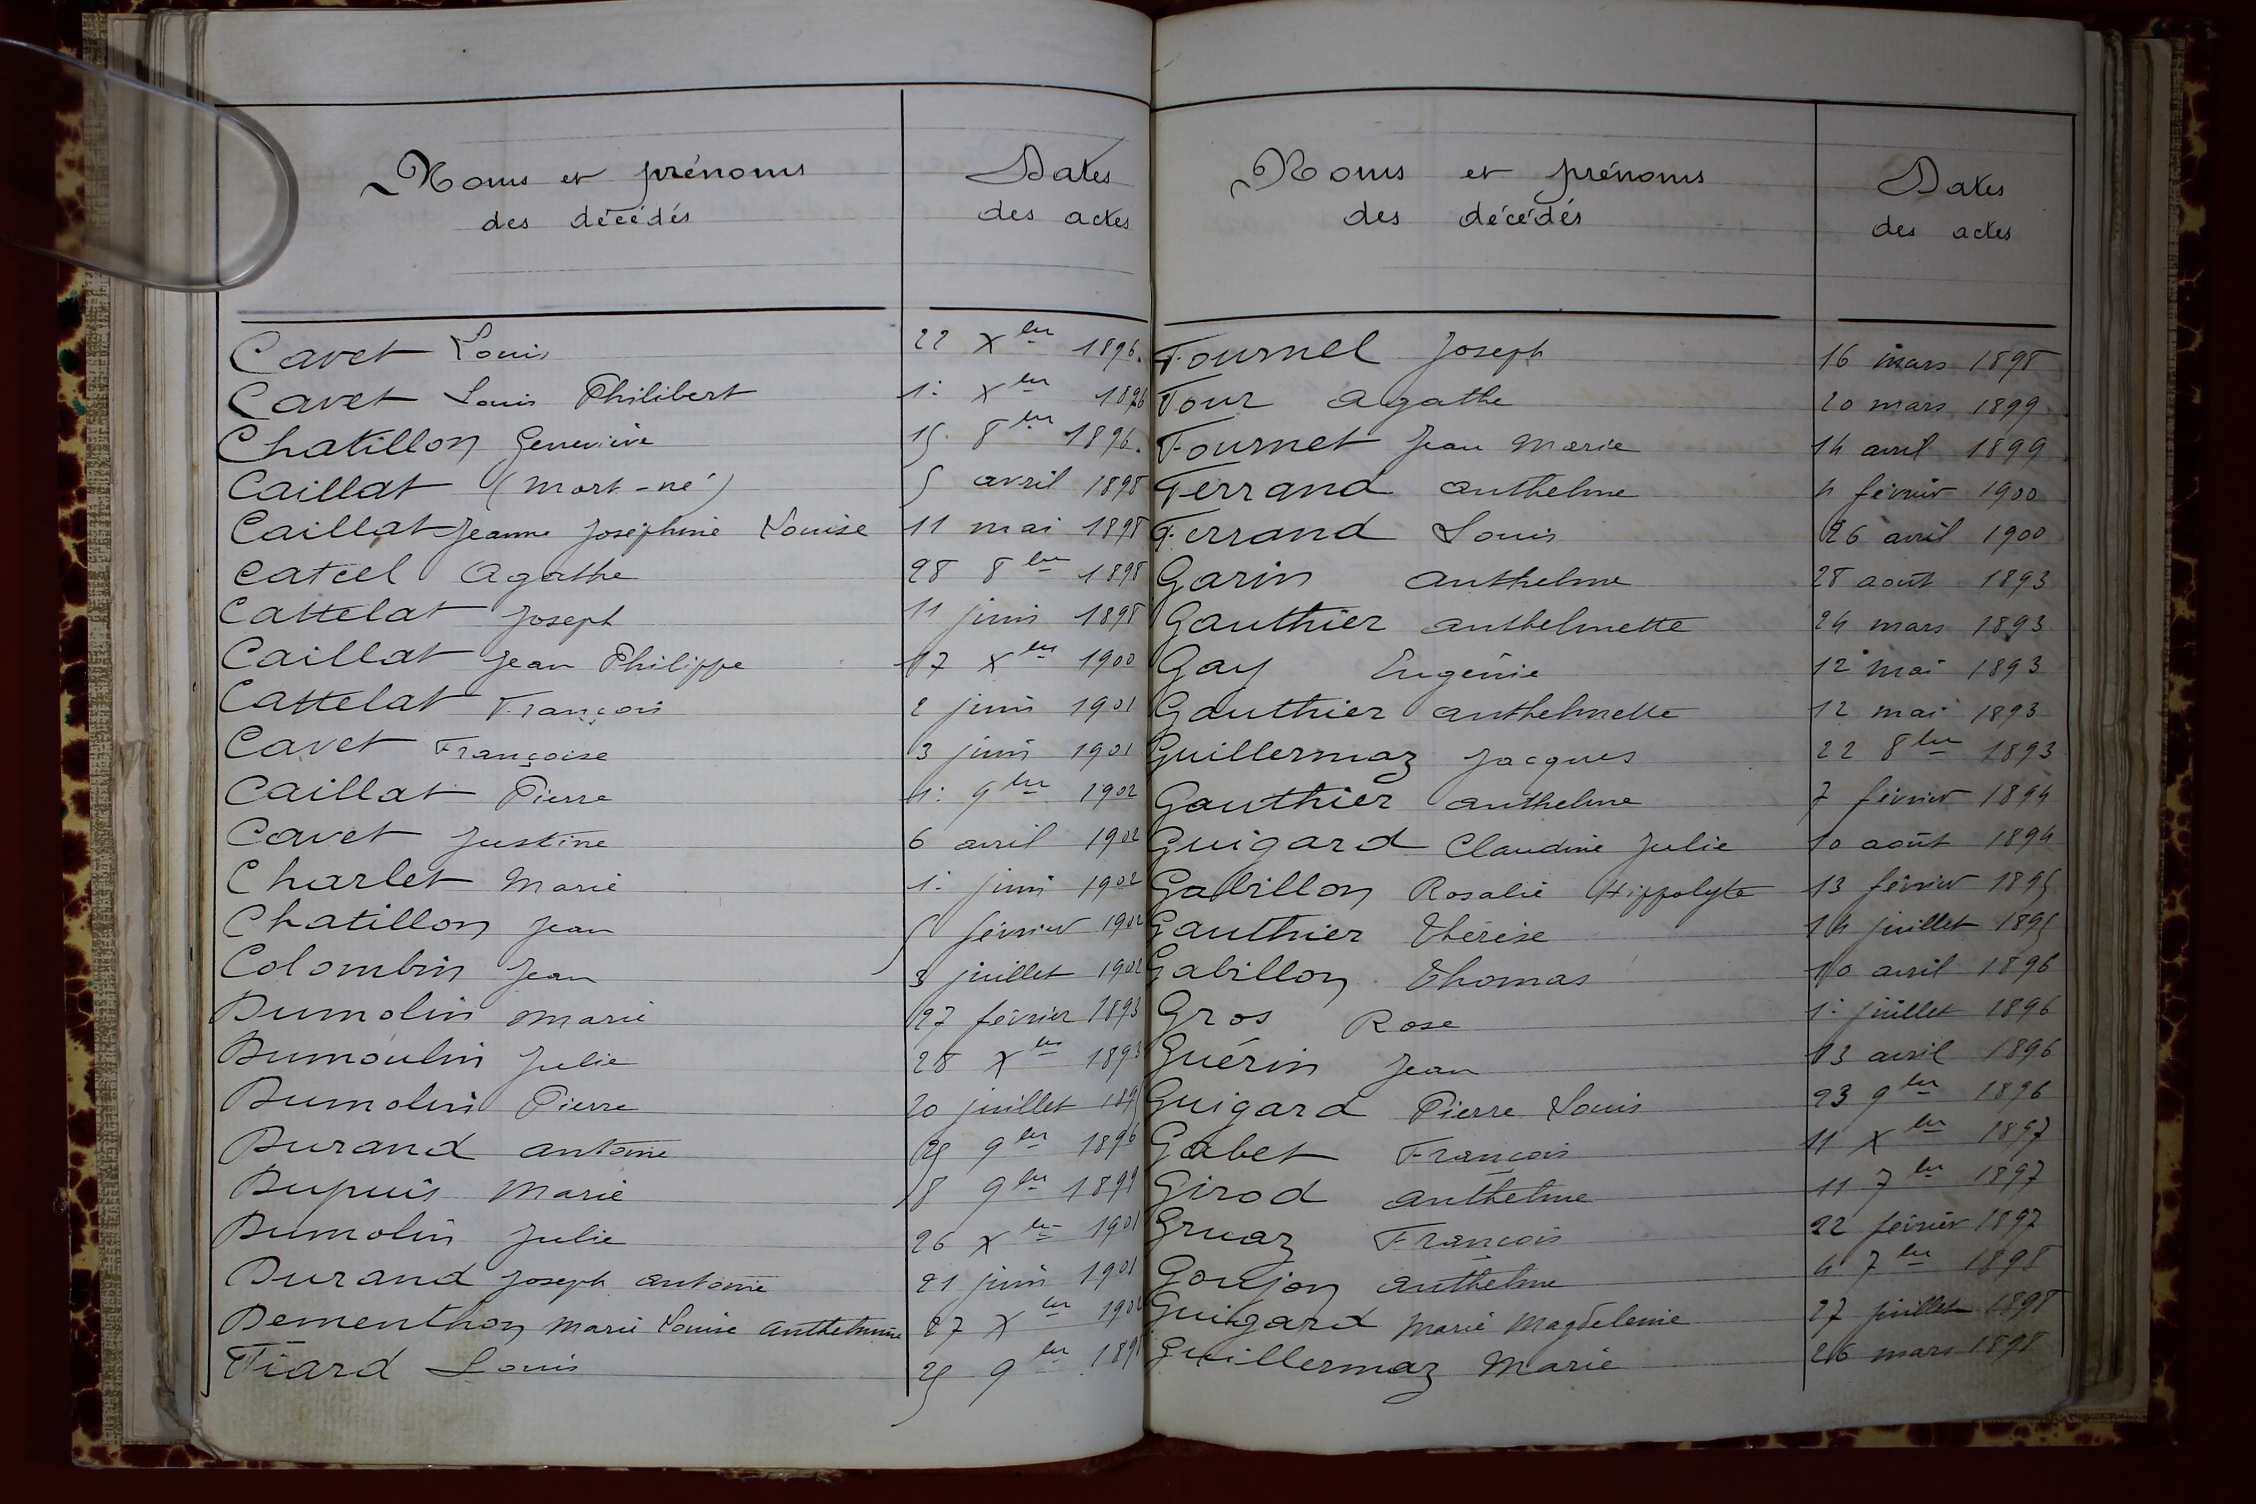 Noms et prénoms
des décédés
Dates
des actes
Cavet Louis 22 Xbre 1896.
Cavet Louis Philibert 1: Xbre 1896
Chatillon Geneviève 15 8bre 1896.
Caillat (mort-né) 5 avril 1898
Caillat Jeanne Joséphine Louise 11 mai 1898
Catcel Agathe 28 8bre 1898
Cattelat Joseph 11 juin 1898
Caillat Jean Philippe 17 Xbre 1900
Cattelat François 2 juin 1901
Cavet Françoise 3 juin 1901
Caillat Pierre 1: 9bre 1902
Cavet Justine 6 avril 1902
Charlet Marie 1: juin 1902
Chatillon Jean 5 février 1902
Colombin Jean 3 juillet 1902
Dumolin Marie 27 février 1893
Dumoulin Julie 28 Xbre 1893
Dumolin Pierre 20 juillet
Durand Antoine 25 9bre 1896
Dupuis Marie 18 9bre 1899
Dumolin Julie 26 Xbre 1901
Durand Joseph Antoine 21 juin 1901
Dementhon Marie Louise Anthelmine 27 Xbre
Fiard Louis 25 9bre
Noms et prénoms
des décédés
Dates
des actes
Fournel Joseph 16 mars 1898
Four Agathe 20 mars 1899
Fournet Jean Marie 14 avril 1899
Ferrand Anthelme 4 février 1900
Ferrand Louis 26 avril 1900
Garin Anthelme 28 août 1893
Gauthier Anthelmette 24 mars 1893
Gay Eugénie 12 mai 1893
Gauthier Anthelmette 12 mai 1893
Guillermaz Jacques 22 8bre 1893
Gauthier Anthelme 7 février 1894
Guigard Claudine Julie 10 août 1894
Gabillon Rosalie Hippolyte 13 février 1895
Gauthier Thérèse 14 juillet 1895
Gabillon Thomas 10 avril 1896
Gros Rose 1: juillet 1896
Guérin Jean 13 avril 1896
Guigard Pierre Louis 23 9bre 1896
Gabet François 11 Xbre 1897
Girod Anthelme 11 7bre 1897
Gruaz François 22 février 1897
Goujon Anthelme 4 7bre 1898
Guigard Marie Magdeleine 27 juillet 1898
Guillermaz Marie 26 mars 1898